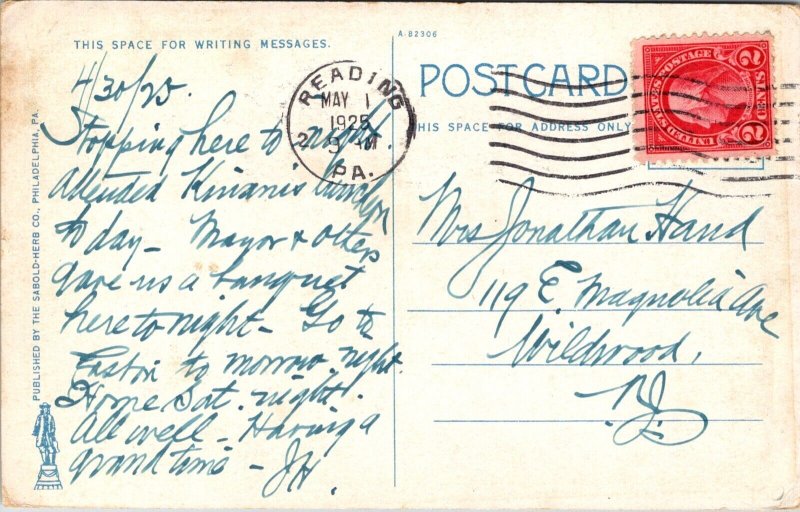 THIS SPACE FOR WRITING MESSAGES.
4/30/25.
Stopping here to night.
Attended Kiwanis lunch
to day - Mayor & others
gave us a banquet
here to night - Go to
Easton to morrow night.
Home Sat. night.
All well - Having a
grand time - JH
PUBLISHED BY THE SABOLD-HERB CO., PHILADELPHIA, PA.
A-82306
POST CARD
THIS SPACE FOR ADDRESS ONLY
READING
MAY 1
1925
9 AM
2
PA.
2 CENTS 2
UNITED STATES POSTAGE
Mrs Jonathan Hand
119 E. Magnolia Ave
Wildwood,
N.J.